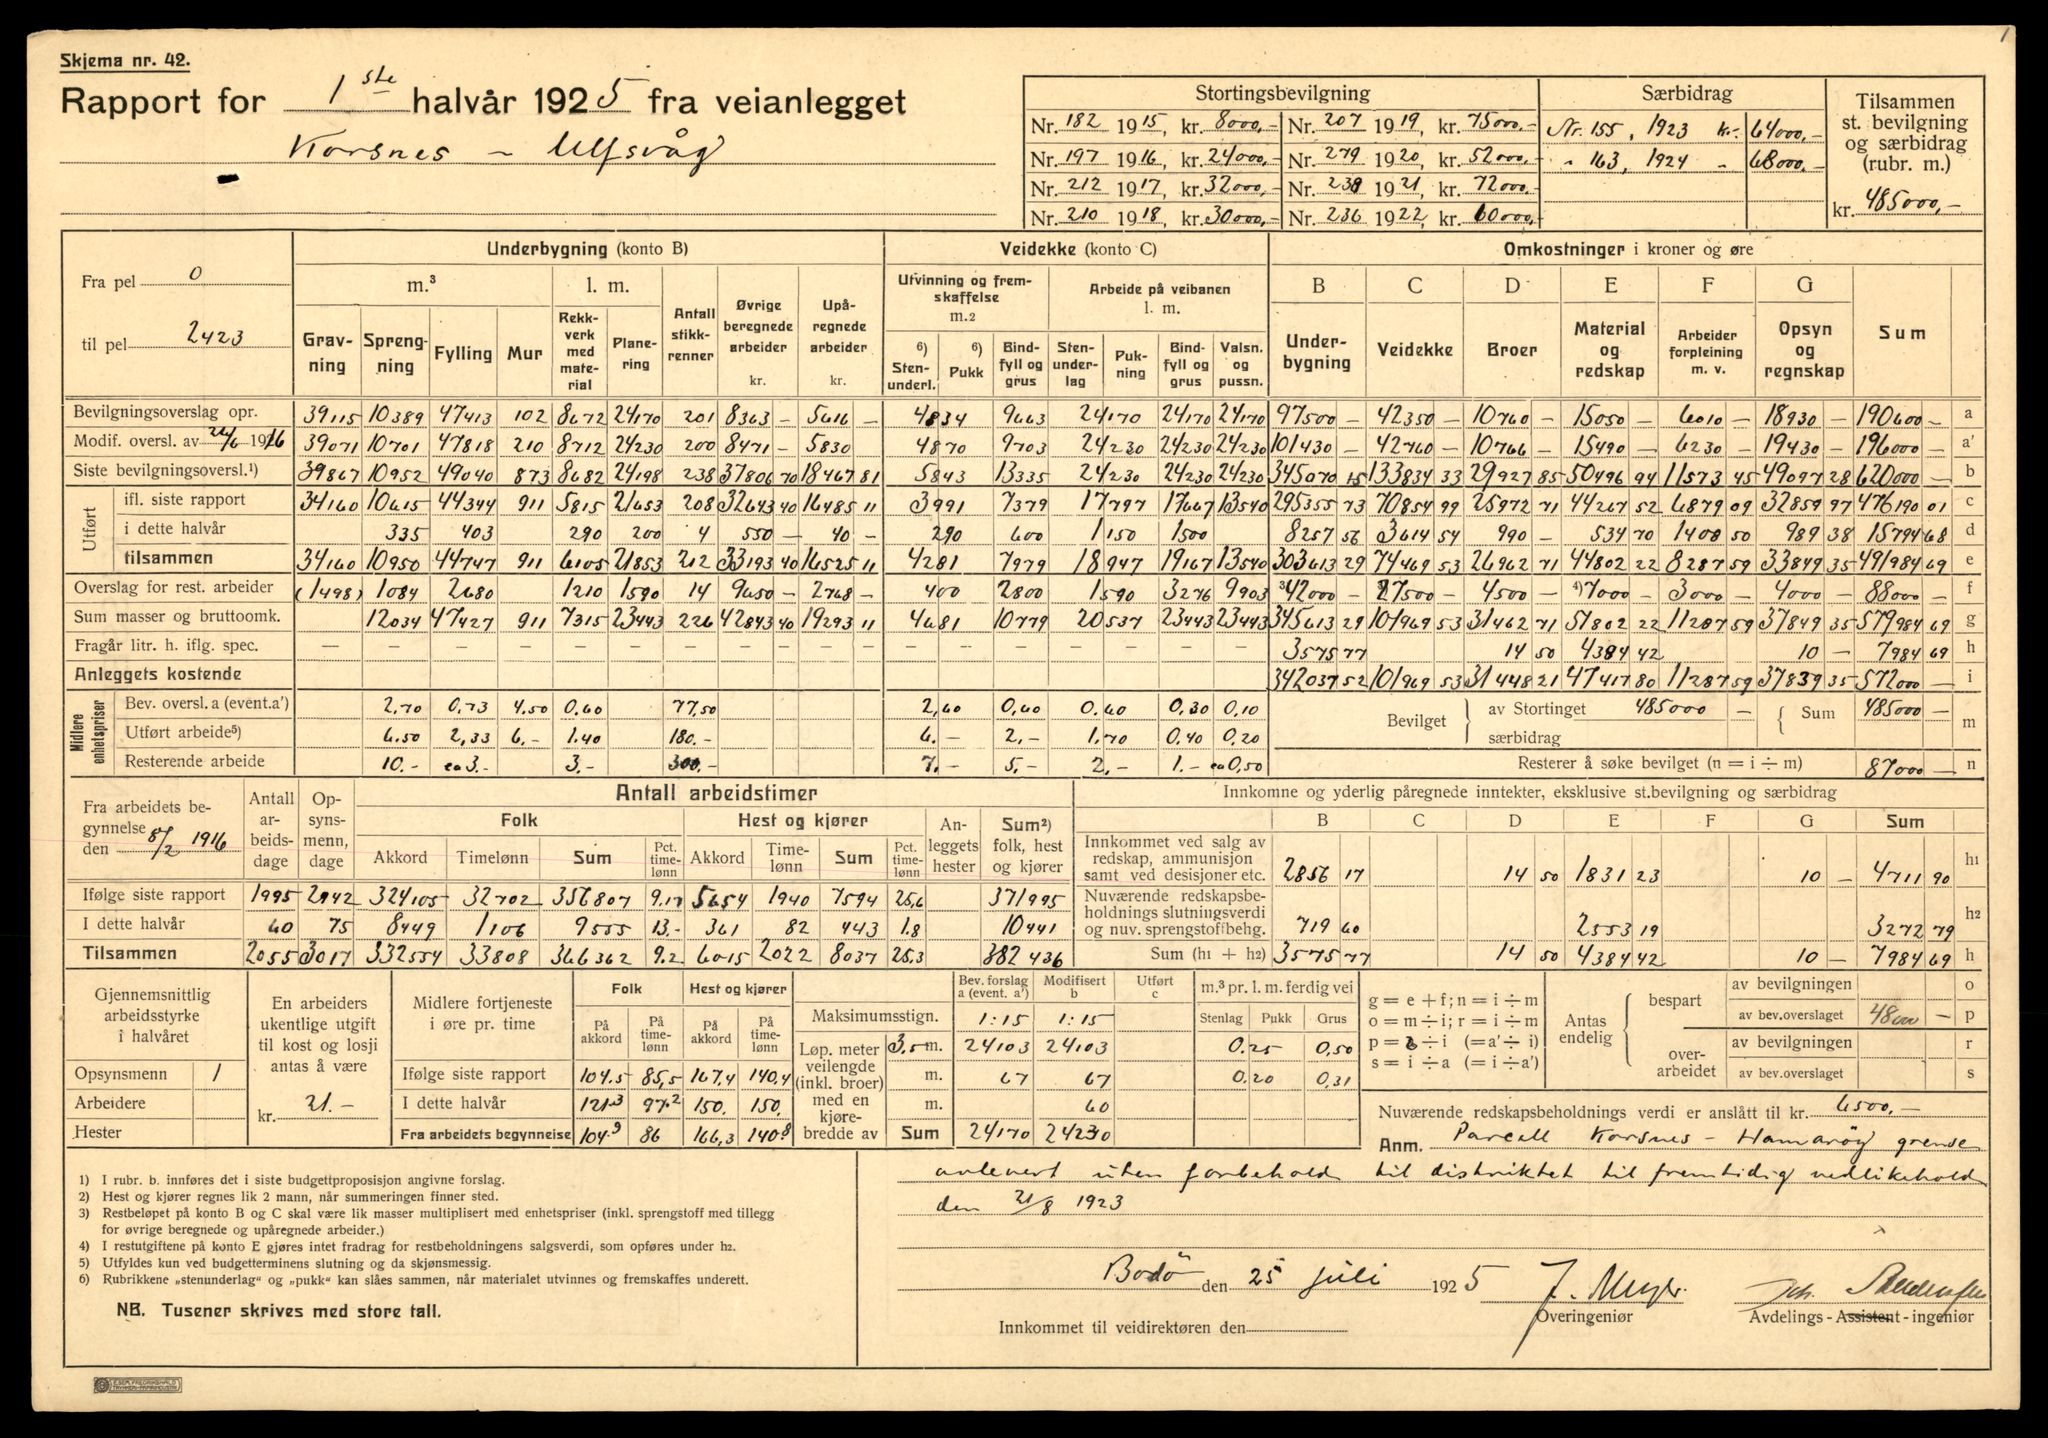 1
Skjema nr. 42.
Rapport for 1ste halvår 1925 fra veianlegget
Korsnes - Ulfsvåg
Stortingsbevilgning | Særbidrag | Tilsammen st. bevilgning og særbidrag (rubr. m.)
Nr. 182 1915, kr. 8000,- Nr. 207 1919, kr. 75000,- Nr. 155, 1923 kr. 64000,-
Nr. 197 1916, kr. 24000,- Nr. 279 1920, kr. 52000,- " 163, 1924 - 68000,-
Nr. 212 1917, kr. 32000,- Nr. 238 1921, kr. 72000,-
Nr. 210 1918, kr. 30000,- Nr. 236 1922, kr. 60000,- kr. 485000,-
Fra pel 0
til pel 2423
Underbygning (konto B) | Veidekke (konto C) | Omkostninger i kroner og øre
m.3 | l. m. | Antall stikkrenner | Øvrige beregnede arbeider kr. | Upåregnede arbeider kr. | Utvinning og fremskaffelse m.2 | Arbeide på veibanen l. m. | B | C | D | E | F | G | Sum
Gravning | Sprengning | Fylling | Mur | Rekkverk med material | Planering | 6) Stenunderl. | 6) Pukk | Bindfyll og grus | Stenunderlag | Pukning | Bindfyll og grus | Valsn. og pussn. | Underbygning | Veidekke | Broer | Material og redskap | Arbeider forpleining m. v. | Opsyn og regnskap
Bevilgningsoverslag opr. 39115 10389 47413 102 8672 24170 201 8363 - 5616 - 4834 9663 24170 24170 24170 97500 - 42350 - 10760 - 15050 - 6010 - 18930 - 190600 - a
Modif. oversl. av 24/6 1916 39071 10701 47818 210 8712 24230 200 8471 - 5830 4870 9703 24230 24230 24230 101430 - 42760 - 10766 - 15490 - 6230 - 19430 - 196000 - a'
Siste bevilgningsoversl.1) 39867 10952 49040 873 8682 24198 238 37806 70 18467 81 5843 13335 24230 24230 24230 345070 15 133834 33 29927 85 50496 94 11573 45 49097 28 620000 - b
Utført
ifl. siste rapport 34160 10615 44344 911 5815 21653 208 32643 40 16485 11 3991 7379 17797 17667 13540 295355 73 70854 99 25972 71 44267 52 6879 09 32859 97 476190 01 c
i dette halvår 335 403 290 200 4 550 - 40 - 290 600 1150 1500 8257 56 3614 54 990 - 534 70 1408 50 989 38 15794 68 d
tilsammen 34160 10950 44747 911 6105 21853 212 33193 40 16525 11 4281 7979 18947 19167 13540 303613 29 74469 53 26962 71 44802 22 8287 59 33849 35 491984 69 e
Overslag for rest. arbeider (1498) 1084 2680 1210 1590 14 9650 - 2768 - 400 2800 1590 3276 9903 3)42000 - 27500 - 4500 - 4)7000 - 3000 - 4000 - 88000 - f
Sum masser og bruttoomk. 12034 47427 911 7315 23443 226 42843 40 19293 11 4681 10779 20537 23443 23443 345613 29 101969 53 31462 71 51802 22 11287 59 37849 35 579984 69 g
Fragår litr. h. iflg. spec. - - - - - - - - - - - - - - - 3575 77 14 50 4384 42 10 - 7984 69 h
Anleggets kostende 342037 52 101969 53 31448 21 47417 80 11287 59 37839 35 572000 - i
Midlere enhetspriser
Bev. oversl. a (event.a') 2,70 0,73 4,50 0,60 77,50 2,60 0,60 0,60 0,30 0,10 Bevilget av Stortinget 485000 - Sum 485000 - m
Utført arbeide5) 6.50 2,33 6.- 1.40 180.- 6.- 2,- 1,70 0,40 0,20 særbidrag
Resterende arbeide 10.- ca 3.- 3.- 300.- 7.- 5,- 2,- 1.- ca 0,50 Resterer å søke bevilget (n = i ÷ m) 87000 - n
Fra arbeidets begynnelse den 8/2 1916 | Antall arbeidsdage | Opsynsmenn, dage
Antall arbeidstimer
Folk | Hest og kjører | Anleggets hester | Sum2) folk, hest og kjører
Akkord | Timelønn | Sum | Pct. timelønn | Akkord | Timelønn | Sum | Pct. timelønn
Ifølge siste rapport 1995 2942 324105 32702 356807 9.17 5654 1940 7594 25,6 371995
I dette halvår 60 75 8449 1106 9555 13.- 361 82 443 1.8 10441
Tilsammen 2055 3017 332554 33808 366362 9.2 6015 2022 8037 25.3 382436
Innkomne og yderlig påregnede inntekter, eksklusive st.bevilgning og særbidrag
B C D E F G Sum
Innkommet ved salg av redskap, ammunisjon samt ved desisjoner etc. 2856 17 14 50 1831 23 10 - 4711 90 h1
Nuværende redskapsbeholdnings slutningsverdi og nuv. sprengstoffbehg. 719 60 2553 19 3272 79 h2
Sum (h1 + h2) 3575 77 14 50 4384 42 10 - 7984 69 h
Gjennemsnittlig arbeidsstyrke i halvåret
Opsynsmenn 1
Arbeidere
Hester
En arbeiders ukentlige utgift til kost og losji antas å være
kr. 21.-
Midlere fortjeneste i øre pr. time | Folk | Hest og kjører
På akkord | På timelønn | På akkord | På timelønn
Ifølge siste rapport 104.5 85,5 167,4 140,4
I dette halvår 121.3 97.2 150. 150.
Fra arbeidets begynnelse 104.9 86 166,3 140.8
Bev. forslag a (event. a') | Modifisert b | Utført c
Maksimumsstign. 1:15 1:15
Løp. meter veilengde (inkl. broer) med en kjørebredde av
3,5 m. 24103 24103
m. 67 67
m. 60
Sum 24170 24230
m.3 pr. l. m. ferdig vei
Stenlag | Pukk | Grus
0.25 0,50
0.20 0,31
g = e + f; n = i ÷ m
o = m ÷ i; r = i ÷ m
p = b ÷ i (= a' ÷ i)
s = i ÷ a (= i ÷ a')
Antas endelig
bespart av bevilgningen o
av bev.overslaget 48000 - p
overarbeidet av bevilgningen r
av bev.overslaget s
Nuværende redskapsbeholdnings verdi er anslått til kr. 6500,-
Anm. Parcell Korsnes - Hamarøy grense
avlevert uten forbehold til distriktet til fremtidig vedlikehold
den 21/8 1923
1) I rubr. b. innføres det i siste budgettproposisjon angivne forslag.
2) Hest og kjører regnes lik 2 mann, når summeringen finner sted.
3) Restbeløpet på konto B og C skal være lik masser multiplisert med enhetspriser (inkl. sprengstoff med tillegg
for øvrige beregnede og upåregnede arbeider.)
4) I restutgiftene på konto E gjøres intet fradrag for restbeholdningens salgsverdi, som opføres under h2.
5) Utfyldes kun ved budgetterminens slutning og da skjønsmessig.
6) Rubrikkene „stenunderlag" og „pukk" kan slåes sammen, når materialet utvinnes og fremskaffes underett.
NB. Tusener skrives med store tall.
Bodö den 25 juli 1925
Overingeniør
Avdelings-Assistent-ingeniør
Innkommet til veidirektøren den